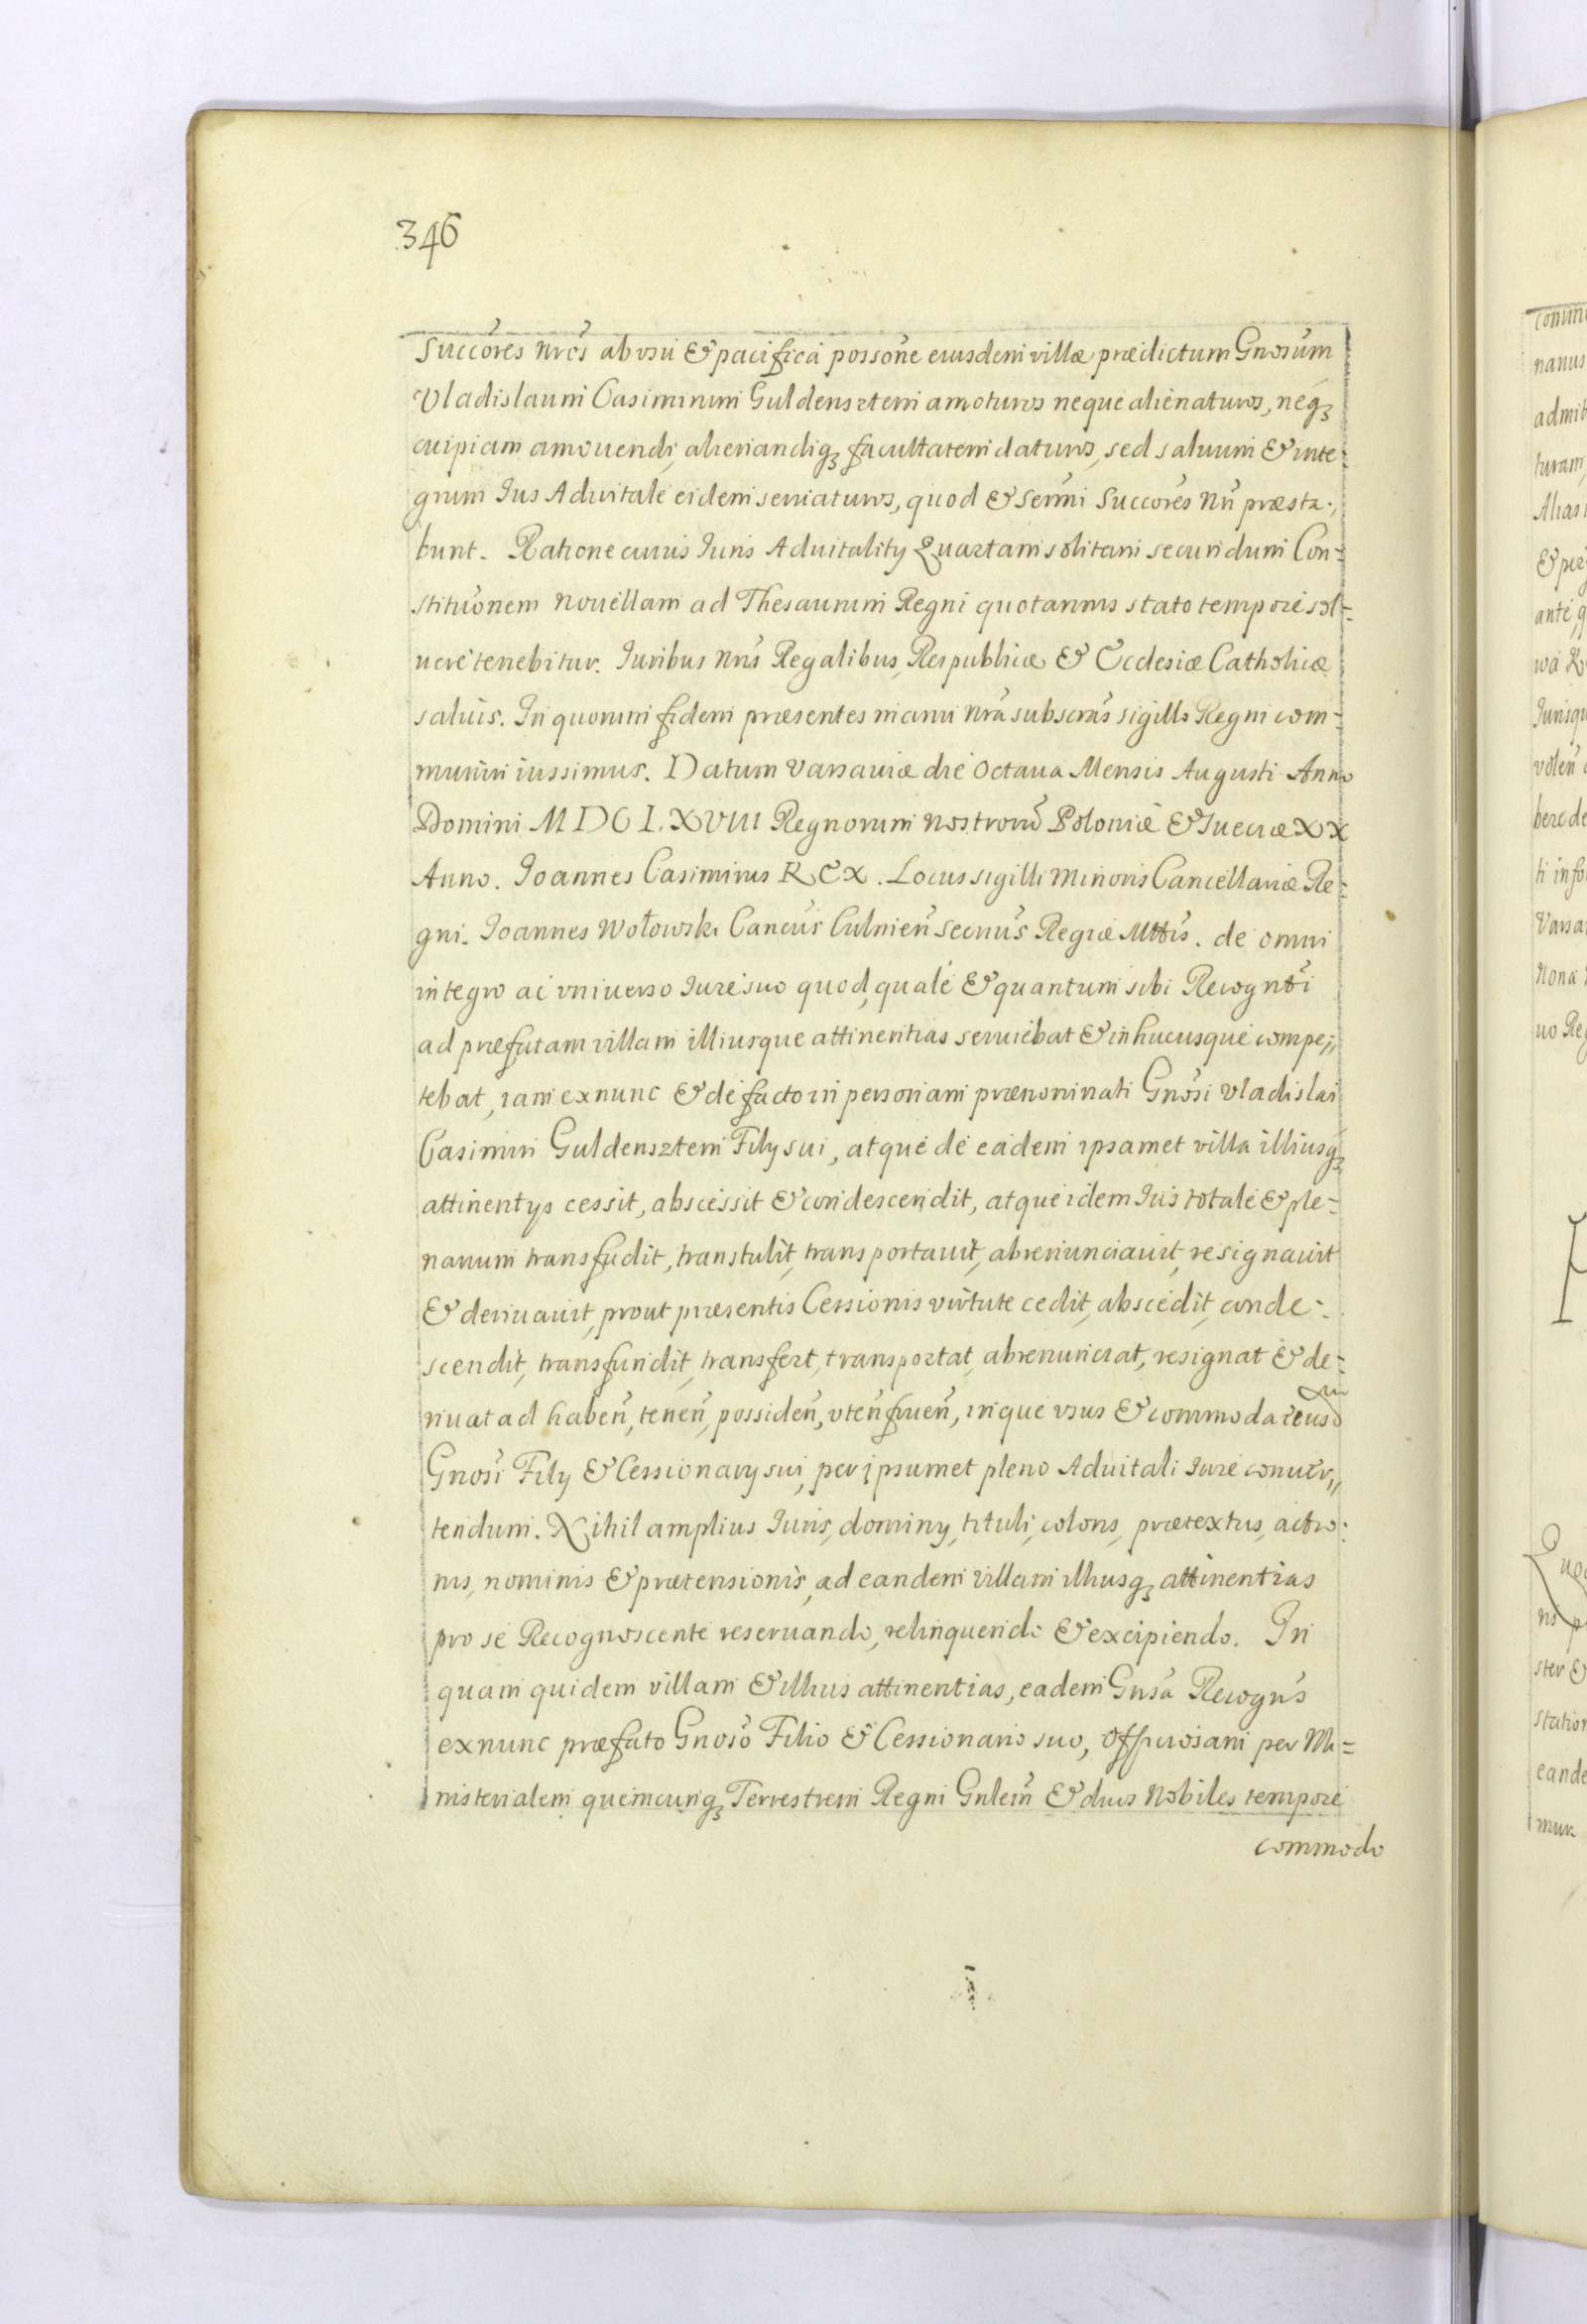 346
Succōres nrōs ab usu & pacifica possōne eiusdem villæ prædictum Gnōsum
Vladislaum Casimirum Guldensztern amoturos neque alienaturos, neqꝫ
cuipiam amouendi, alienandiqꝫ facultatem daturos, sed saluum & inte-
grum Ius Aduitale eidem seruaturos, quod & Sermi Succōres Nrī præsta-
bunt. Ratione cuius Iuris Aduitalitÿ Quartam solitam secundum Con-
stituōnem Nouellam ad Thesaurum Regni quotannis stato tempore sol-
uere tenebitur. Iuribus Nrīs Regalibus, Reipublicæ & Ecclesiæ Catholicæ
saluis. In quorum fidem præsentes manu Nrā subscrās sigillo Regni com-
muniri iussimus. Datum Varsauiæ die Octaua Mensis Augusti Anno
Domini MDCLXVIII Regnorum Nostrorū Poloniæ & Sueciæ XX
Anno. Ioannes Casimirus REX. Locus sigilli Minoris Cancellariæ Re-
gni. Ioannes Wołowski Cancūs Culmieñ Secrīus Regiæ Mttis. de omni
integro ac vniuerso Iure suo quod, quale & quantum sibi Recognti
ad præfatam villam illiusque attinentias seruiebat & in hucusque compe-
tebat, iam ex nunc & de facto in personam prænominati Gnōsi Vladislai
Casimiri Guldensztern Filÿ sui, atque de eadem ipsamet villa illiusqꝫ
attinentÿs cessit, abscessit & condescendit, atque idem Ius totale & ple-
narium transfudit, transtulit, transportauit, abrenunciauit, resignauit
& deriuauit, prout præsentis Cessionis virtute cedit, abscedit, conde-
scendit, transfundit, transfert, transportat, abrenunciat, resignat & de-
riuat ad habeñ, teneñ, possideñ, vteñ frueñ, inque vsus & commoda eiusd
Gnōsi Filÿ & Cessionarÿ sui, per ipsumet pleno Aduitali Iure conuer-
tendum. Nihil amplius Iuris, dominÿ, tituli, coloris, prætextus, actio-
nis, nominis & prætensionis, ad eandem villam illiusqꝫ attinentias
pro se Recognoscente reseruando, relinquendo & excipiendo. In
quam quidem villam & illius attinentias, eadem Gnsā Recogns
ex nunc præfato Gnōso Filio & Cessionario suo, officiosam per Mi-
nisterialem quemcunqꝫ Terrestrem Regni Gnlem & duos Nobiles tempore
commodo